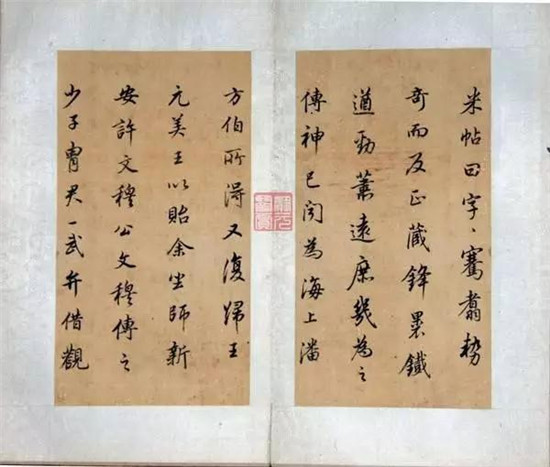 米帖曰字〻騫翥勢
奇而反正藏鋒裹鐵
遒勁蕭遠庶幾為之
傳神已問為海上潘
方伯所得又復歸王
元美王以貽余坐師新
安許文穆公文穆傳之
少子胄君一武弁借觀